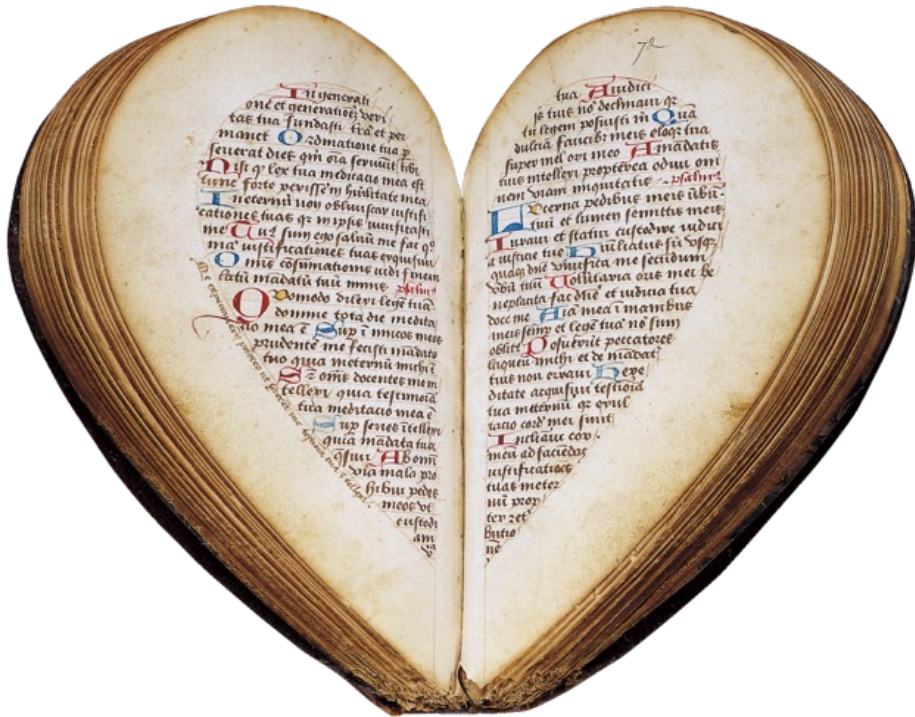 In generati
onē et generationē veri
tas tua fundasti trā et per
manet Ordinatione tua p
severat dies qm oīa serviūt tibi
Nisi qͥ lex tua meditatio mea est
tunc forte perissē in huilitate mea
In eternū non obliviscar iustifi
cationes tuas qr in ipsis vivificasti
me Tuꝰ sum ego salvū me fac qͦ
niā iustificationes tuas exquisivi
Omīs cōsumatiomis vidi finem
latū mādatū tuū nimis psalmꝰ
Quomodo dilexi legē tuā
domine tota die medita
tio mea ē Sup īimicos meos
prudentē me fecisti mādato
tuo quia ineternū michi ē
Sr omīs docentes me in
tellexi quia testimoīa
tua meditacio mea ē
Sup senes ītellexi
quia mādata tua
q̄sivi Ab omī
via mala pro
hibui pedes
meos vt
custodi
am
tua A iudici
js tuis nō declinavi qr
tu legem posuisti mͥ Quā
dulcia faucibꝫ meis eloqͥa tua
super mel ori meo A mādatis
tuis intellexi propterea odivi om
nem viam iniquitatis psalmꝰ
Lucerna pedibus meis ūbū
tuū et lumen semitis meis
Iuravi et statui custodire iudici
a iusticie tue Humiliatus sū vsqꝫ
quaqꝫ dn̄e vivifica me secundum
v̄bū tuū Voluntaria oris mei be
neplacita fac dn̄e et iudicia tua
doce me Aīa mea ī manibus
meis semp et legē tuā nō sum
oblitꝰ Posuerūt peccatores
laqueū michi et de mādat
tuis non erravi Here
ditate acquisivi testioīa
tua ineternū qr exul
tacio cord mei sunt
Inclīavi cor
meū ad faciendas
iustificatioēs
tuas ineter
nū prop
ter ret
butio
nē